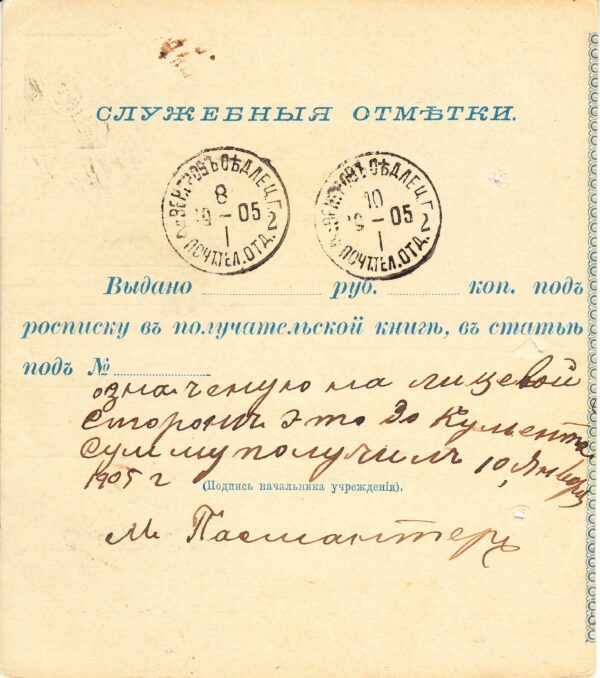 СЛУЖЕБНЫЯ ОТМѢТКИ.
ВЕНГРОВЪ СѢДЛЕЦ. Г.
8
19 – 05
I
2
ПОЧ. ТЕЛ. ОТД.
ВЕНГРОВЪ СѢДЛЕЦ. Г.
10
19 – 05
I
2
ПОЧ. ТЕЛ. ОТД.
Выдано руб. коп. подъ
росписку въ получательской книгѣ, въ статьѣ
подъ №
означеную на лицевой
сторонѣ это документа
сумму получилъ 10 Января
1905 г
(Подпись начальника учрежденія).
М Пасмантеръ